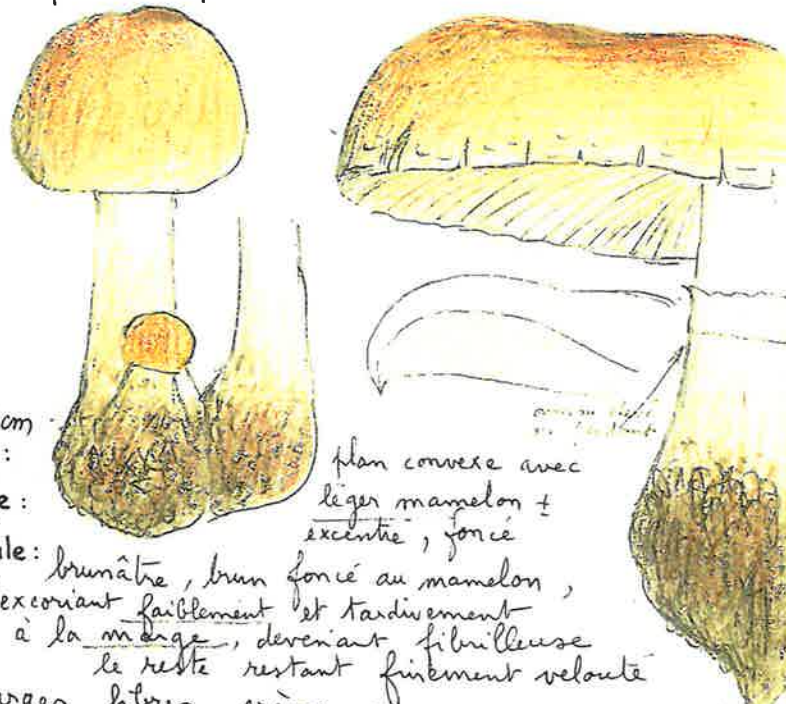 cm
:
plan convexe avec
e :
léger mamelon ±
excentré, foncé
ule :
brunâtre, brun foncé au mamelon,
excoriant faiblement et tardivement
à la marge, devenant fibrilleuse
le reste restant finement velouté